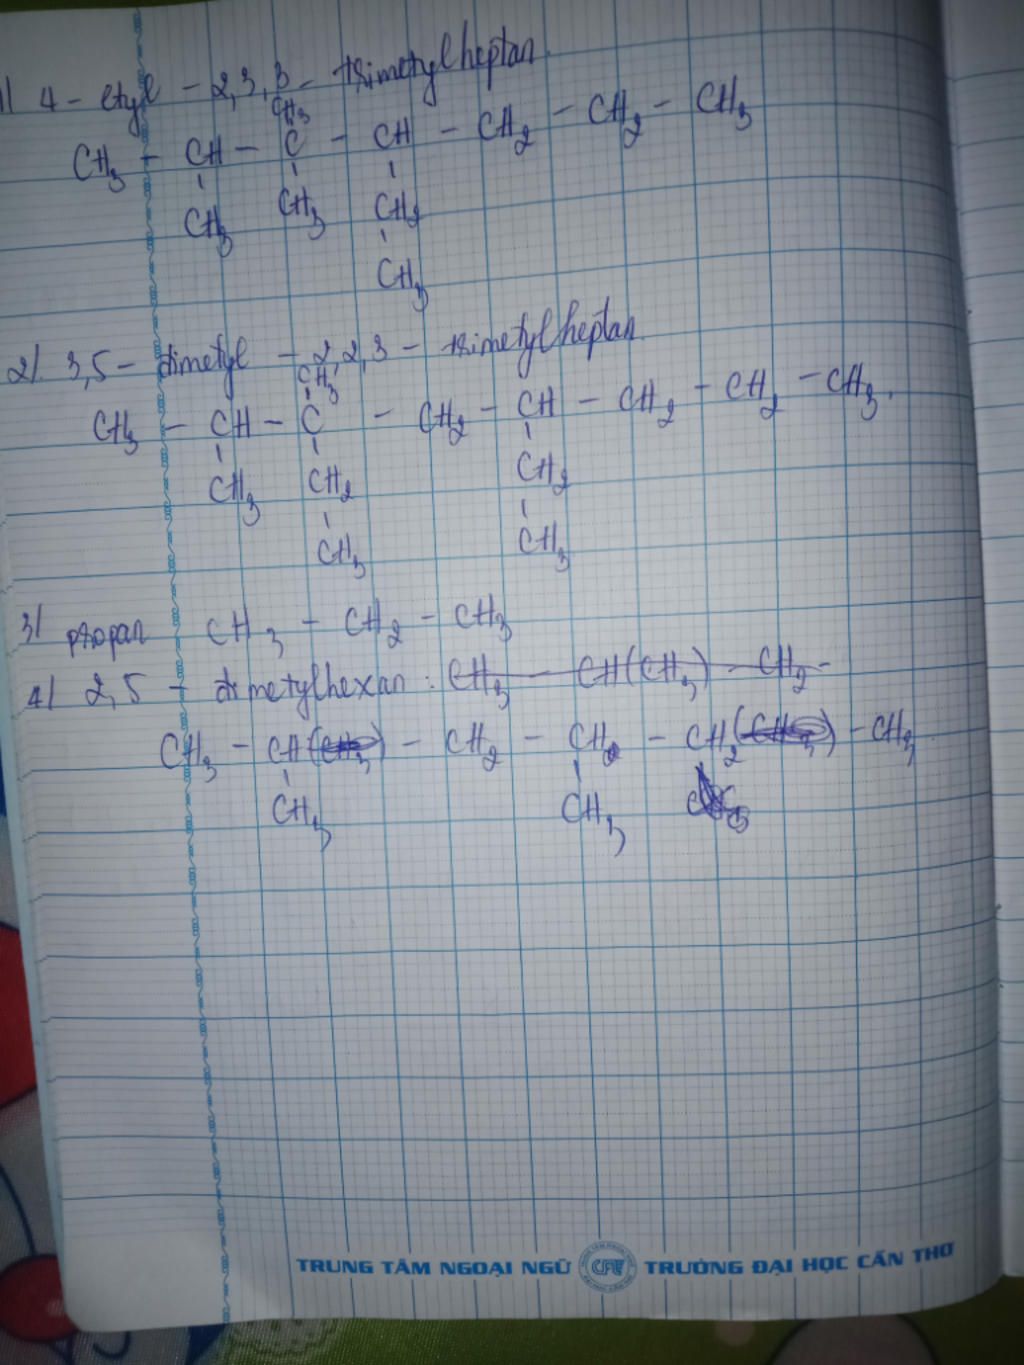 1) 4 - etyl - 2,3,3 - trimetylheptan.
CH3
CH3 - CH - C - CH - CH2 - CH2 - CH3
CH3 CH3 CH2
CH3
2). 3,5 - dimetyl - 2,2,3 - trimetylheptan.
CH3
CH3 - CH - C - CH2 - CH - CH2 - CH2 - CH3.
CH3 CH2 CH2
CH3 CH3
3) propan CH3 - CH2 - CH3
4) 2,5 - dimetylhexan : CH3 - CH(CH3) - CH2 -
CH3 - CH(CH3) - CH2 - CH - CH2(CH3) - CH3
CH3 CH3
TRUNG TÂM NGOẠI NGỮ TRƯỜNG ĐẠI HỌC CẦN THƠ